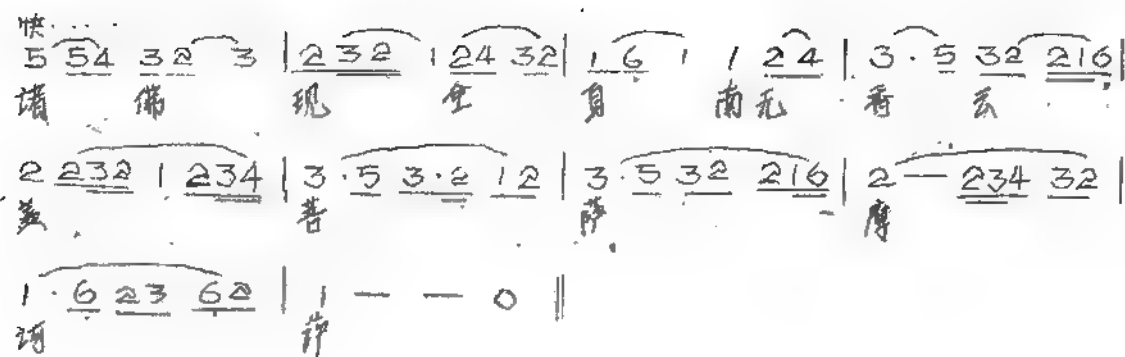 快....
5 54 32 3 | 2 32 1 24 32 | 1 6 1 1 24 | 3 . 5 32 216 |
诸 佛 现 全 身 南 无 香 云
2 232 1 234 | 3 . 5 3 . 2 12 | 3 . 5 32 216 | 2 — 234 32 |
盖 菩 萨 摩
1 . 6 23 62 | 1 — — 0 ‖
诃 萨